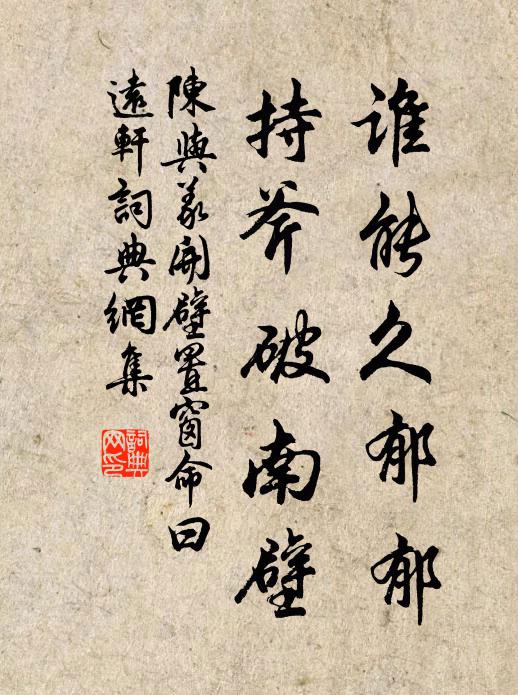 谁能久郁郁
持斧破南壁
陳與義開壁置窗命曰
遠軒詞典網集
詞典网印